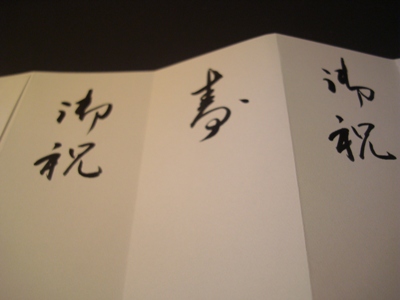 御祝
寿
御祝